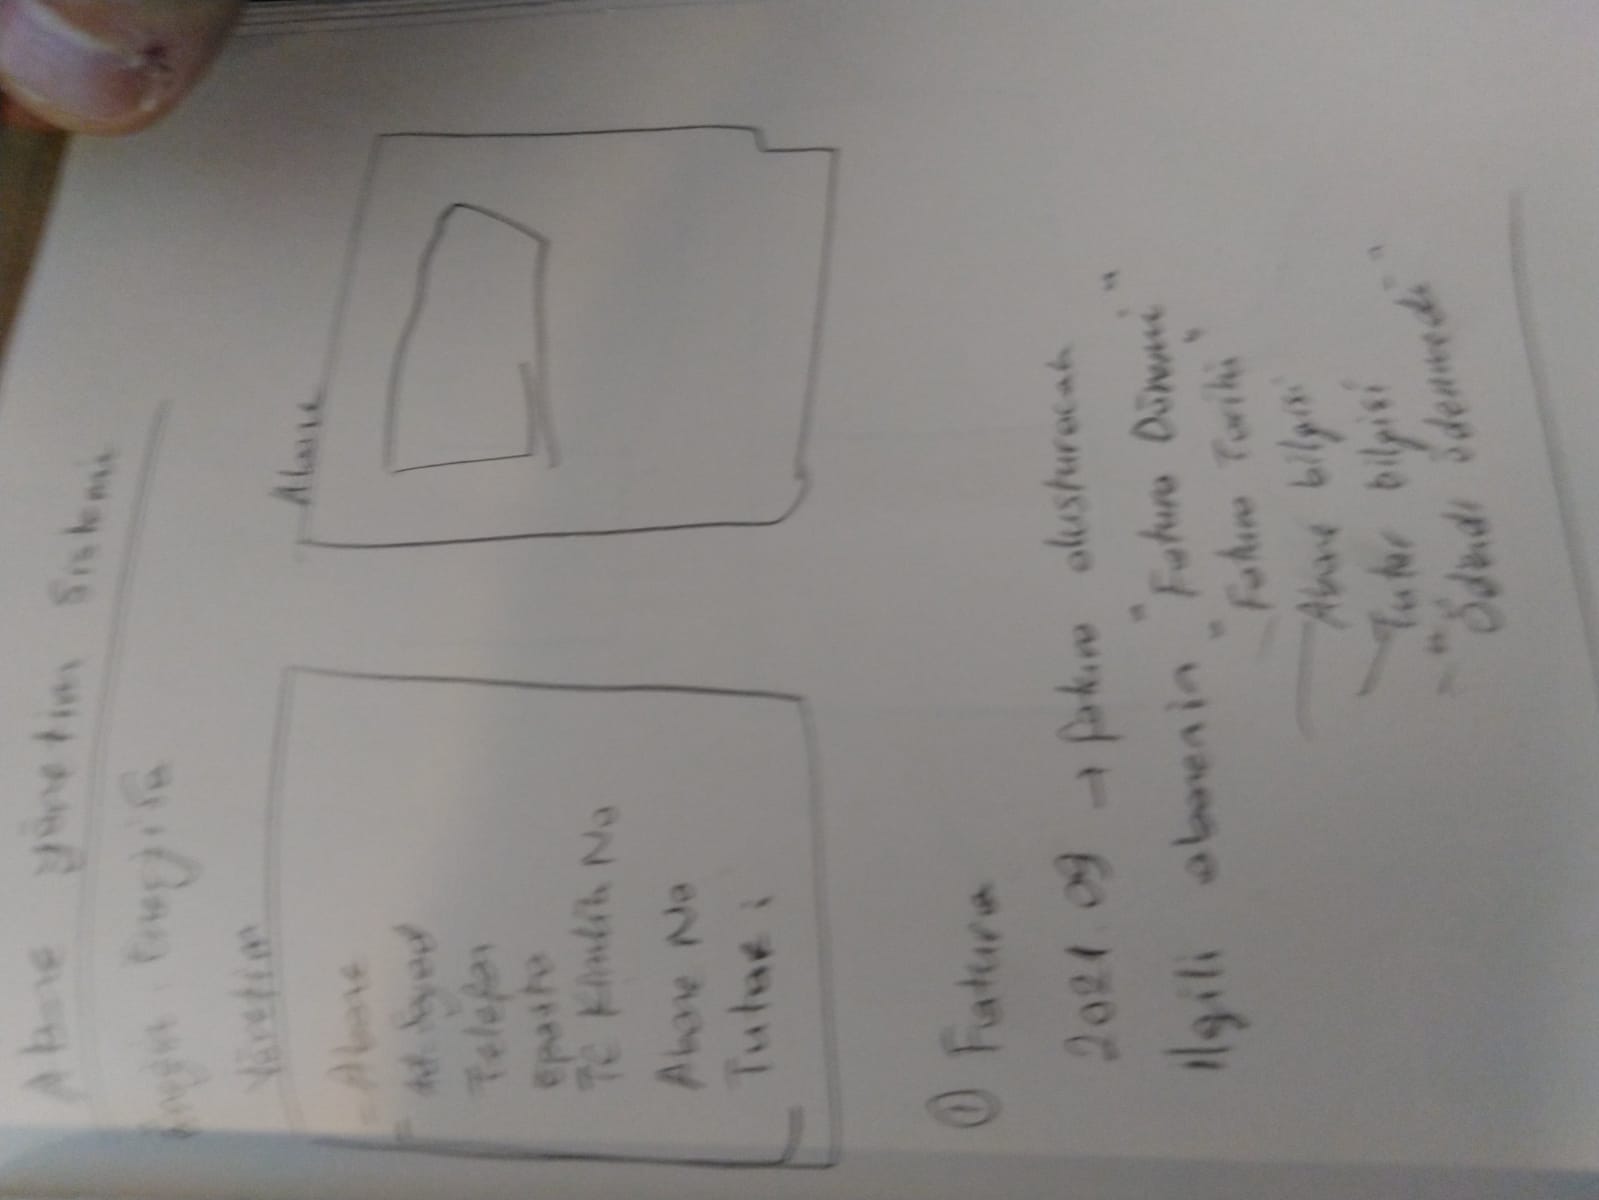 Abone yönetim Sistemi
Enerjisa
Yönetim
- Abone
Ad. Soyad
Telefon
Eposta
TC Kimlik No
Abone No
Tutar :
Abone
① Fatura
2021.09 → fatura oluşturacak
İlgili abonenin "Fatura Dönemi"
"Fatura Tarihi"
Abone bilgisi
Tutar bilgisi
- "Ödendi ödenmedi"